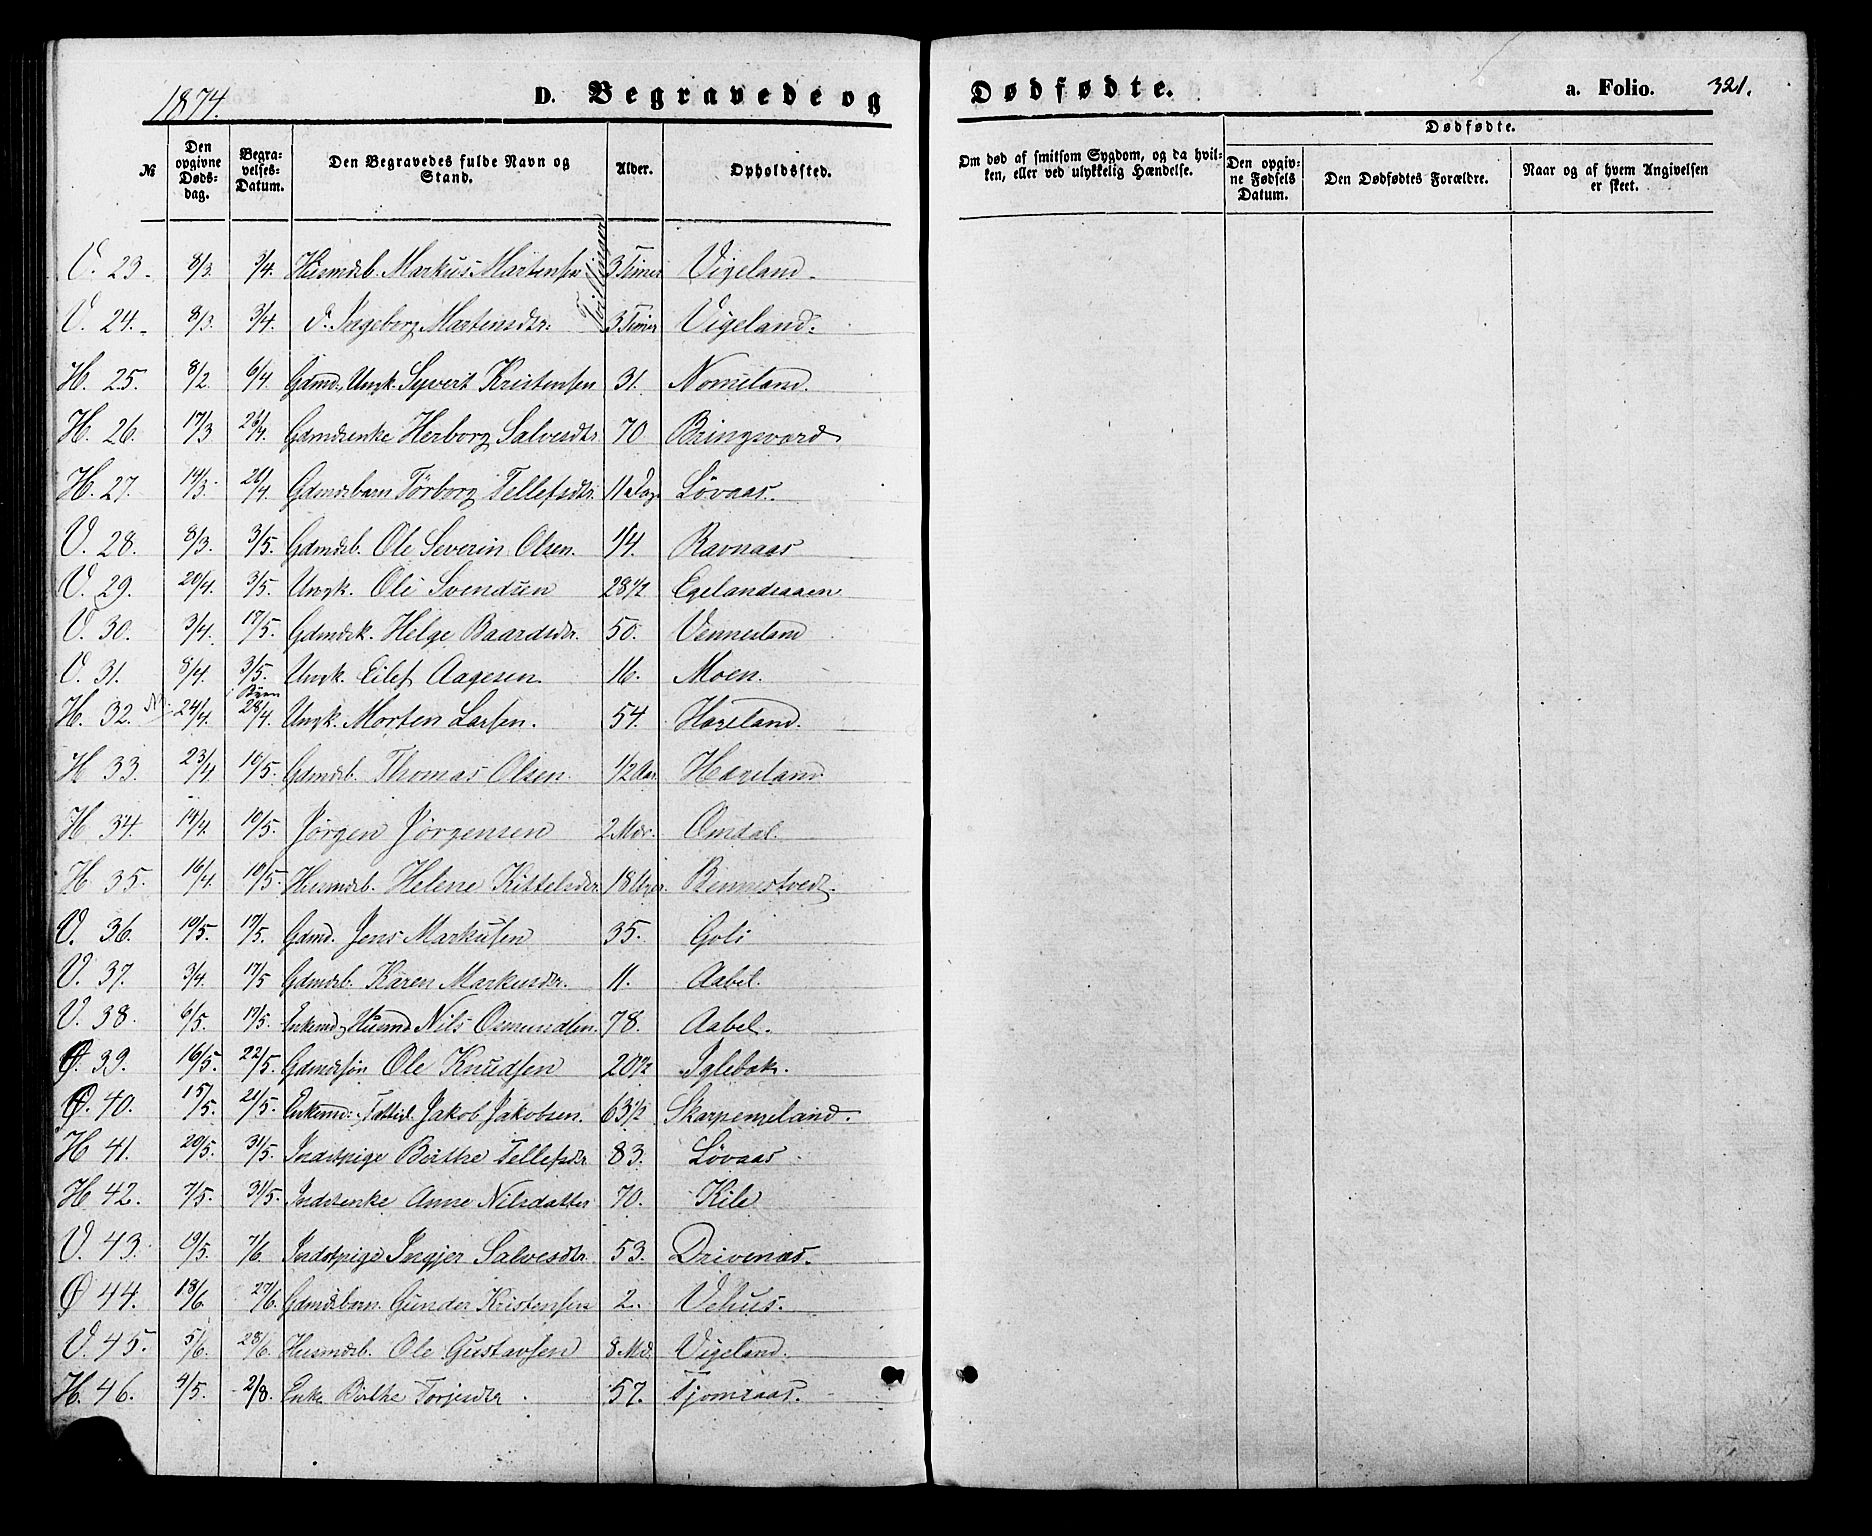 1874. D. Begravede og Dødfødte. a. Folio. 321.
№ Den opgivne Dødsdag. Begravelses-Datum. Den Begravedes fulde Navn og Stand. Alder. Opholdssted. Om død af smitsom Sygdom, og da hvilken, eller ved ulykkelig Hændelse. Dødfødte. Den opgivne Fødsels Datum. Den Dødfødtes Forældre. Naar og af hvem Angivelsen er skeet.
Tvillinger
V. 23. 8/3. 3/4. Husmdsb. Markus Martensen 3 Timer Vigeland.
V. 24. 8/3. 3/4. d. Ingeborg Martensdtr. 3 Timer Vigeland.
H. 25. 8/2. 6/4. Gdmd., Ungk. Syvert Kristensen 31. Nomeland.
H. 26. 17/3 26/4. Gdmdsenke Herborg Salvesdtr. 70 Bringsvard
H. 27. 14/3. 26/4. Gdmdsbarn Törborg Tellefsdtr. 11 Dage Lövaas.
V. 28. 8/3. 3/5. Gdmdsb. Ole Severin Olsen. 14. Ravnaas
V. 29. 20/4. 3/5. Ungk. Ole Svendsen 28 1/2 Egelandsaaen
V. 30. 3/4. 17/5. Gdmdsk. Helge Baardsdtr. 50. Vennesland
V. 31. 8/4 3/5. Ungk. Eilef Aagesen. 16. Moen.
H. 32. 24/4. i Byen 28/4. Ungk. Morten Larsen. 54. Hægeland.
H 33. 23/4 10/5. Gdmdsb. Thomas Olsen. 1/2 Aar. Hægeland
H 34. 14/4. 10/5. Jörgen Jörgensen 2 Mdr. Omdal.
H 35. 16/4. 10/5. Husmdsb. Helene Kittelsdtr. 18 Uger. Bennestvedt.
V. 36. 10/5. 17/5. Gdmd. Jens Markusen 35. Goli
V. 37. 3/4. 17/5 Gdmdsb. Karen Markusdtr. 11. Aabel.
V. 38. 6/5. 17/5. Enkemd., Husmd Nils Osmundsen. 78. Aabel.
Ø. 39. 16/5. 22/5. Gdmdssön Ole Knudsen 20 1/2 Iglebæk.
Ø. 40. 15/5. 21/5. Enkemd. Jakob Jakobsen. 63 1/2 Skarpengland.
H 41. 20/5. 31/5. Indstpige Birthe Tellefsdtr 83. Lövaas
H 42. 7/5. 31/5. Indstenke Anne Nilsdatter 70. Kile
V. 43. 19/5. 7/6. Indstpige Ingjer Salvesdtr. 53. Drivenæs.
Ø 44. 18/6. 27/6. Gdmdsbarn. Gunder Kristensen 2. Vehus.
V. 45. 5/6. 28/6. Husmdsb. Ole Gustavsen 8 Md. Vigeland.
H. 46. 4/5. 2/8. Enke Birthe Torjusdtr 57. Tjomsaas.